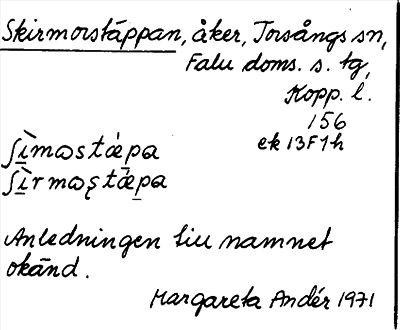 Skirmorstäppan, åker, Torsångs sn,
Falu doms. s. tg,
Kopp. l.
156
ek 13F1h
ʃì̱mɷstǽpa
ʃì̱rmɷʂtǽpa
Anledningen till namnet
okänd.
Margareta Andér 1971